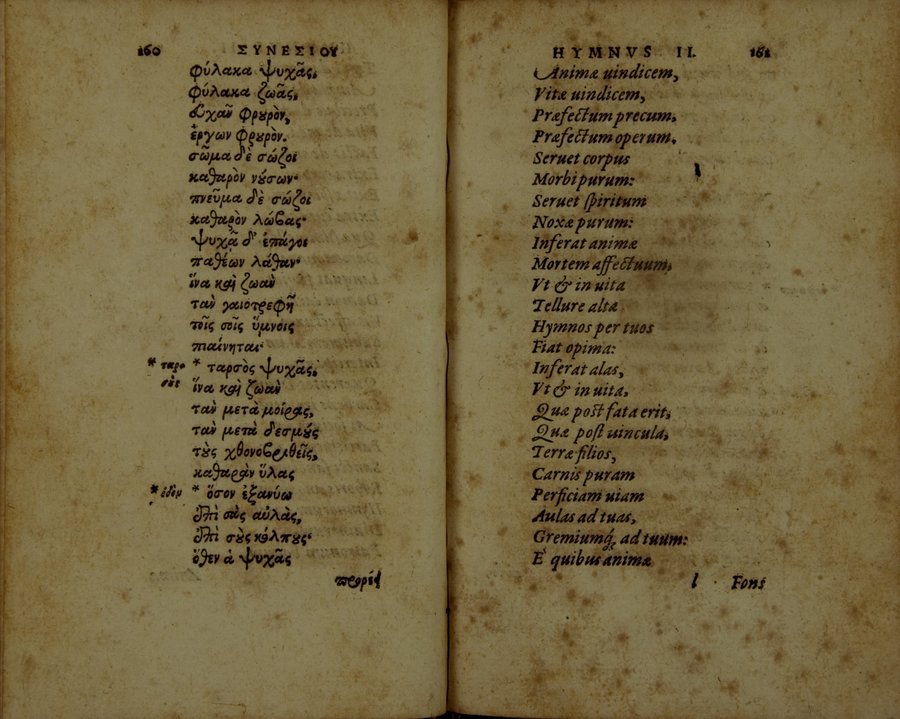 160 ΣΥΝΕΣΙΟΥ
φύλακα ψυχᾶς,
φύλακα ζωᾶς,
εὐχᾶν φρουρὸν,
ἔργων φρουρὸν.
σῶμα δὲ σώζοι
καθαρὸν νούσων·
πνεῦμα δὲ σώζοι
καθαρὸν λώβας·
ψυχᾷ δ' ἐπάγοι
παθέων λάθαν·
ἵνα καὶ ζωὰν
τὰν γαιοτρεφῆ
τοῖς σοῖς ὕμνοις
πιαίνηται·
* ταρσοὺς
* ταρσὸς ψυχᾶς,
ἵνα καὶ ζωὰν
τὰν μετὰ μοίρας,
τὰν μετὰ δεσμοὺς
τοὺς χθονοβριθεῖς,
καθαρὰν ὕλας
* ὁδὸν
* ὅσον ἐξανύω
ἐπὶ σὰς αὐλὰς,
ἐπὶ σοὺς κόλπους·
ὅθεν ἁ ψυχᾶς
HYMNVS II. 161
Animæ uindicem,
Vitæ uindicem,
Præfectum precum,
Præfectum operum.
Seruet corpus
Morbi purum:
Seruet spiritum
Noxæ purum:
Inferat animæ
Mortem affectuum,
Vt & in uita
Tellure alta
Hymnos per tuos
Fiat opima:
Inferat alas,
Vt & in uita,
Quæ post fata erit,
Quæ post uincula,
Terræ filios,
Carnis puram
Perficiam uiam
Aulas ad tuas,
Gremiumq́; ad tuum:
E quibus animæ
l Fons